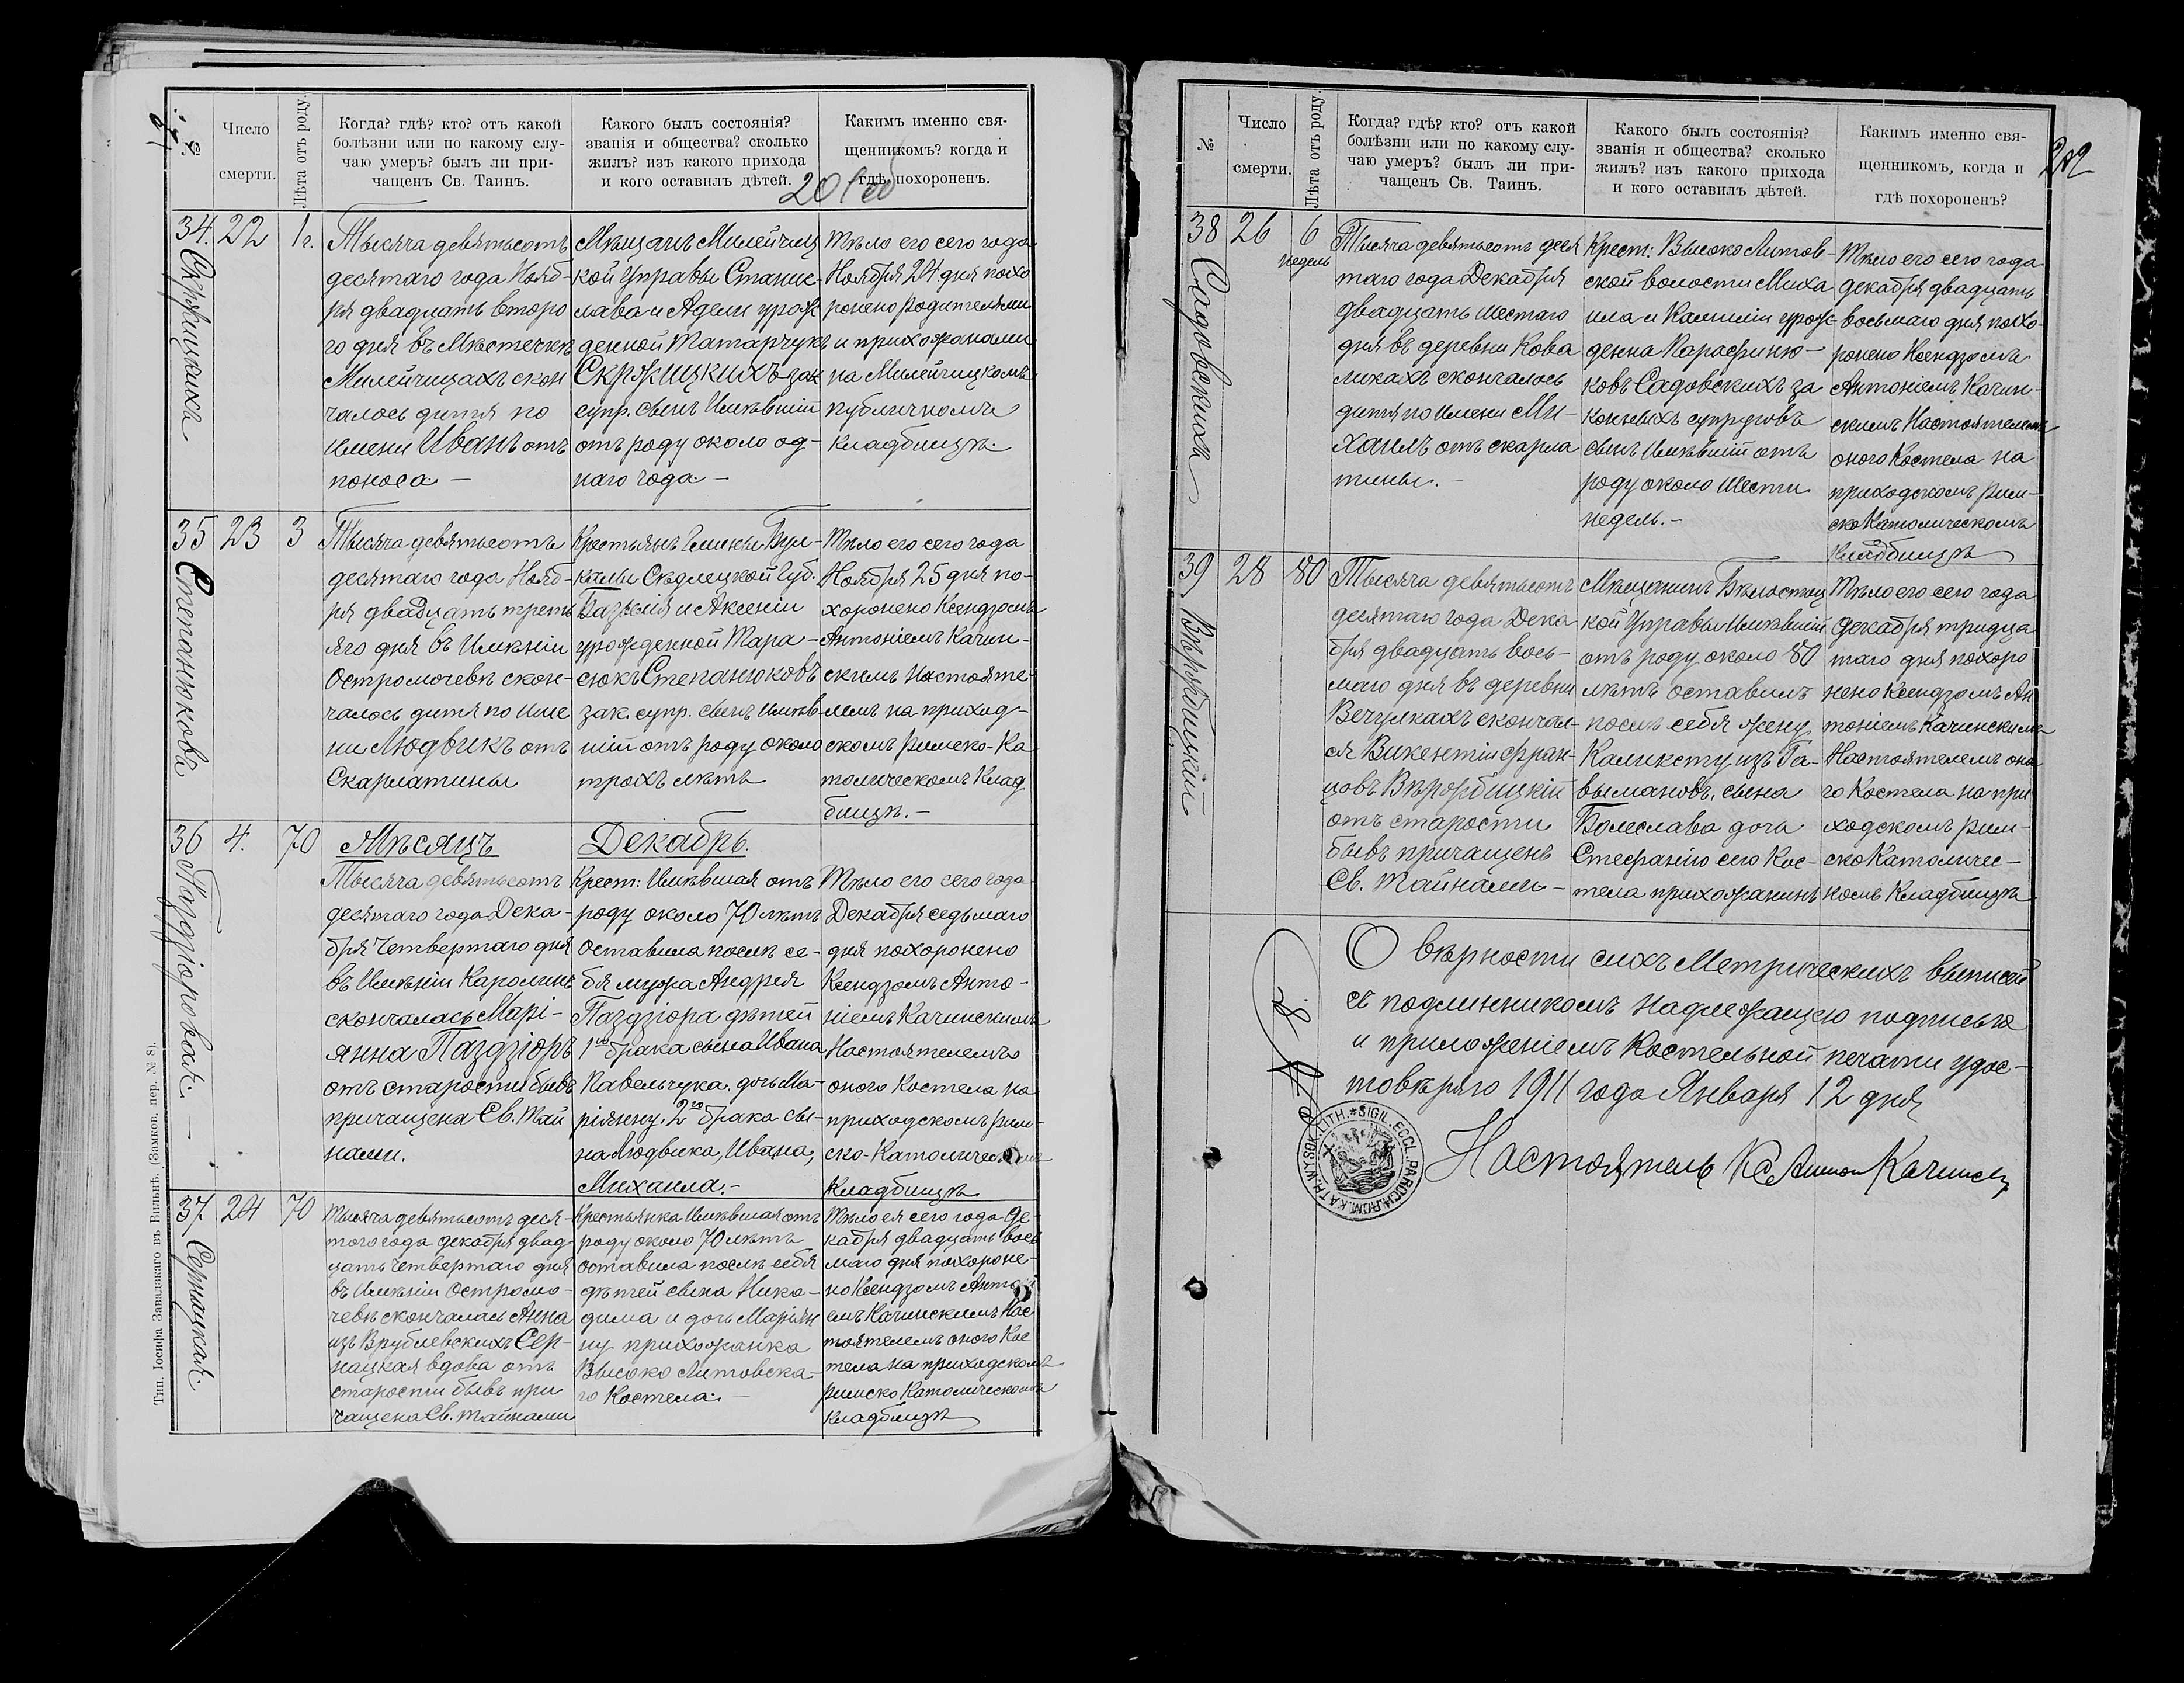 №
Число
смерти.
Лѣта отъ роду.
Когда? гдѣ? кто? отъ какой
болѣзни или по какому слу-
чаю умеръ? былъ ли при-
чащенъ Св. Таинъ.
Какого былъ состоянія?
званія и общества? сколько
жилъ? изъ какого прихода
и кого оставилъ дѣтей.
Какимъ именно свя-
щенникомъ? когда и
гдѣ похороненъ.
34.
Скржицкихъ
22
1 г.
Тысяча девятьсотъ
десятаго года Нояб-
ря двадцать второ
го дня въ Мѣстечкѣ
Милейчицахъ скон
чалось дитя по
имени Иванъ отъ
поноса —
Мѣщанъ Милейчиц
кой Управы Станис-
лава и Адели урож
денной Татарчукъ
Скржицкихъ зак
супр. сынъ имѣвшій
отъ роду около од-
наго года —
Тѣло его сего года
Ноября 24 дня похо
ронено родителями
и прихожанами
на Милейчицкомъ
публичномъ
кладбищѣ.
35
Степанюковъ
23
3
Тысяча девятьсотъ
десятаго года Нояб-
ря двадцать треть
яго дня въ Имѣніи
Остромечевѣ скон-
чалось дитя по име
ни Людвикъ отъ
Скарлатины
Крестьянъ Гмины
Сѣдлецкой Губ.
Базылія и Аксеніи
урожденной Тара-
сюкъ Степанюковъ
зак. супр. сынъ имѣв
шій отъ роду около
трохъ лѣтъ
Тѣло его сего года
Ноября 25 дня по-
хоронено Ксендзомъ
Антоніемъ Качин-
скимъ Настояте-
лемъ на приход-
скомъ Римско-Ка
толическомъ Клад
бищѣ.—
36
Паздзіоровая. —
4.
70
Мѣсяцъ
Декабрь.
Тысяча девятьсотъ
десятаго года Дека-
бря Четвертаго дня
въ Имѣніи Каролинѣ
скончалась Марі-
янна Паздзіоръ
отъ старости бывъ
причащена Св. Тай
нами.
Крест: Имѣвшая отъ
роду около 70 лѣтъ
Оставила послѣ се-
бя мужа Андрея
Паздзіора дѣтей
1го брака сына Ивана
Кавельчука. дочь Ма-
ріянну. 2го брака сы-
на Людвика, Ивана,
Михаила.—
Тѣло его сего года
Декабря седьмаго
дня похоронено
Ксендзомъ Анто-
ніемъ Качинскимъ
Настоятелемъ
оного Костела на
приходскомъ рим-
ско-Католическомъ
Кладбищѣ
37.
Сернацкая.
24
70
Тысяча девятьсотъ деся-
того года декабря двад
цать Четвертаго дня
въ Имѣніи Остроме-
чевѣ скончалась Анна
изъ Врублевскихъ Сер-
нацкая вдова отъ
старости бывъ при
чащена Св. Тайнами
Крестьянка Имѣвшая отъ
роду около 70 лѣтъ
оставила послѣ себя
дѣтей сына Нико-
дима и дочь Маріян
ну прихожанка
Высоко Литовска-
го Костела.—
Тѣло ея сего года де-
кабря двадцать вось
маго дня похороне-
но Ксендзомъ Антоні
емъ Качинскимъ Нас
тоятелемъ оного Кос
тела на приходскомъ
Римско Католическомъ
Кладбищѣ
Тип. Іосифа Завадзкаго въ Вильнѣ. (Замков. пер. № 8).
№
Число
смерти.
Лѣта отъ роду.
Когда? гдѣ? кто? отъ какой
болѣзни или по какому слу-
чаю умеръ? былъ ли при-
чащенъ Св. Таинъ.
Какого былъ состоянія?
званія и общества? сколько
жилъ? изъ какого прихода
и кого оставилъ дѣтей.
Какимъ именно свя-
щенникомъ, когда и
гдѣ похороненъ?
38
Садовскихъ
26
6
недель
Тысяча девятьсотъ деся
таго года Декабря
двадцать шестаго
дня въ деревни Кова
ликахъ скончалось
дитя по имени Ми-
хаилъ отъ скарла
тины.—
Крест: Высоко Литов-
ской волости Миха
ила и Камиліи урож-
денна Парафиню-
ковъ Садовскихъ за
конныхъ супруговъ
сынъ Имѣвшій отъ
роду около шести
недель.—
Тѣло его сего года
декабря двадцать
восьмаго дня похо-
ронено Ксендзомъ
Антоніемъ Качин-
скимъ Настоятелемъ
оного Костела на
приходскомъ рим-
ско Католическомъ
Кладбищѣ
39
Вѣржбицкій
28
80
Тысяча девятьсотъ
десятаго года Дека
бря двадцать вось-
маго дня въ деревни
Вечулкахъ скончал-
ся Викентій Фран-
цовъ Вѣржбицкій
отъ старости
бывъ причащенъ
Св. Тайнами —
Мѣщанинъ Бѣлостоц
кой Управы Имѣвшій
отъ роду около 80
лѣтъ оставилъ
послѣ себя жену
Каликсту изъ Га-
вымановъ, сына
Болеслава дочь
Стефанію сего Кос-
тела прихожанинъ
Тѣло его сего года
декабря тридца
таго дня похоро
нено Ксендзомъ Ан
тоніемъ Качинскимъ
Настоятелемъ она
го Костела на при
ходскомъ рим-
ско Католичес-
комъ Кладбищѣ
О вѣрности сихъ Метрическихъ выписей
съ подлинникомъ надлежащею подписью
и приложеніемъ Костельной печати удос-
товѣряю 1911 года Января 12 дня
Настоятель Кс Антон Качинскі
SIGIL.ECCL.PAROCH.ROM.KATH.WYSOK.LITH.